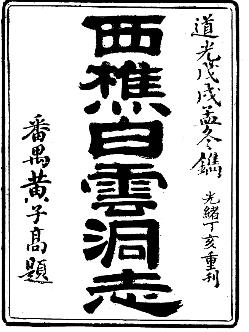 道光戊戌孟冬鐫
光緒丁亥重刊
西樵白雲洞志
番禺黃子高題